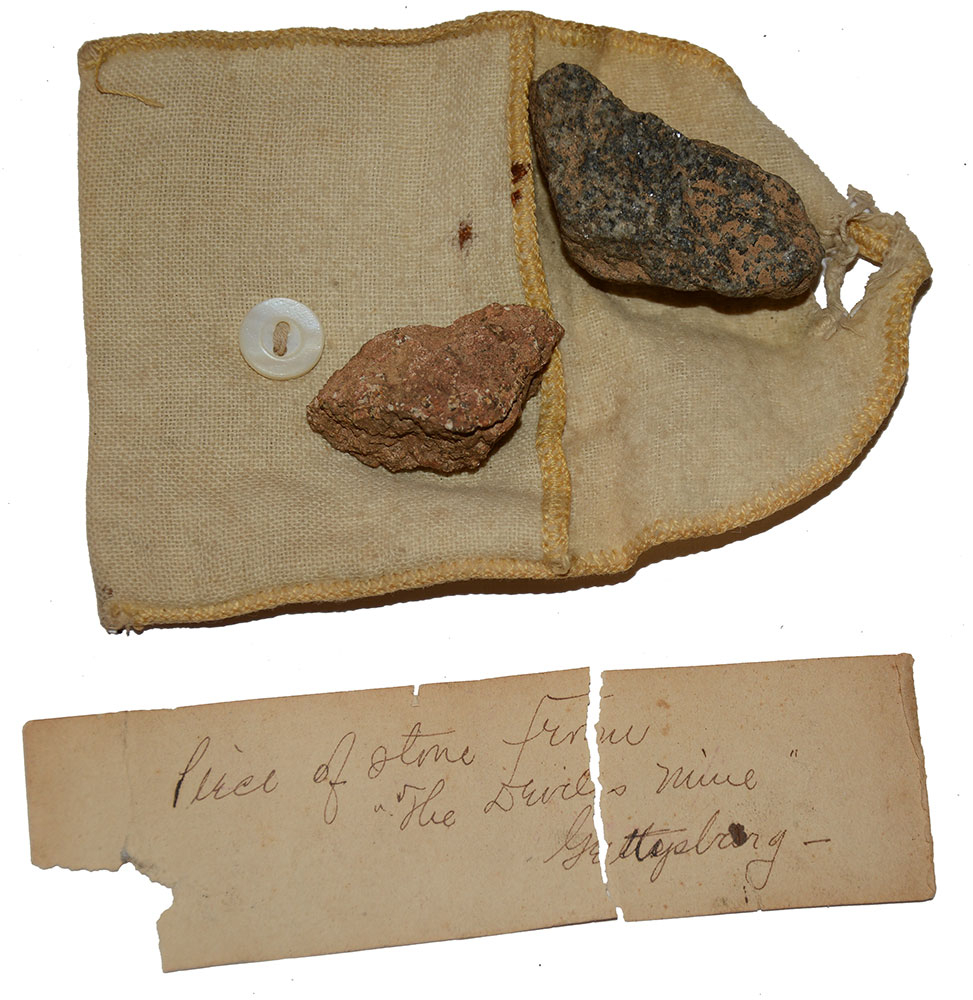 Piece of stone from
"The Devils mine"
Gettysburg –